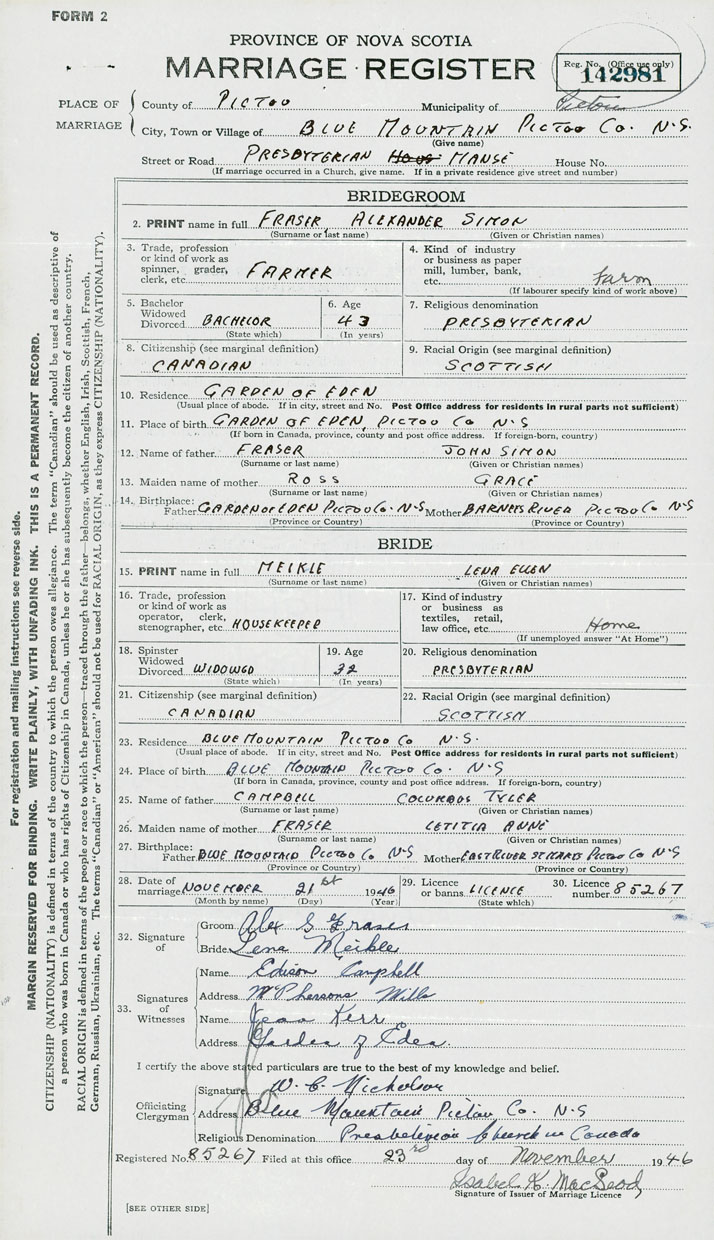 FORM 2
PROVINCE OF NOVA SCOTIA
MARRIAGE REGISTER
Reg. No. (Office use only)
142981
PLACE OF MARRIAGE
County of PICTOU Municipality of Pictou
City, Town or Village of BLUE MOUNTAIN PICTOU Co. N.S.
(Give name)
Street or Road PRESBYTERIAN MANSE House No.
(If marriage occurred in a Church, give name. If in a private residence give street and number)
BRIDEGROOM
2. PRINT name in full FRASER, ALEXANDER SIMON
(Surname or last name) (Given or Christian names)
3. Trade, profession or kind of work as spinner, grader, clerk, etc. FARMER
4. Kind of industry or business as paper mill, lumber, bank, etc. Farm
(If labourer specify kind of work above)
5. Bachelor Widowed Divorced BACHELOR
(State which)
6. Age 43
(In years)
7. Religious denomination
PRESBYTERIAN
8. Citizenship (see marginal definition)
CANADIAN
9. Racial Origin (see marginal definition)
SCOTTISH
10. Residence GARDEN OF EDEN
(Usual place of abode. If in city, street and No. Post Office address for residents in rural parts not sufficient)
11. Place of birth GARDEN OF EDEN, PICTOU Co N-S
(If born in Canada, province, county and post office address. If foreign-born, country)
12. Name of father FRASER JOHN SIMON
(Surname or last name) (Given or Christian names)
13. Maiden name of mother ROSS GRACE
(Surname or last name) (Given or Christian names)
14. Birthplace: Father GARDEN OF EDEN PICTOU Co. N-S Mother BARNEYS RIVER PICTOU Co N-S
(Province or Country) (Province or Country)
BRIDE
15. PRINT name in full MEIKLE LENA ELLEN
(Surname or last name) (Given or Christian names)
16. Trade, profession or kind of work as operator, clerk, stenographer, etc. HOUSEKEEPER
17. Kind of industry or business as textiles, retail, law office, etc. Home
(If unemployed answer "At Home")
18. Spinster Widowed Divorced WIDOWED
(State which)
19. Age 32
(In years)
20. Religious denomination
PRESBYTERIAN
21. Citizenship (see marginal definition)
CANADIAN
22. Racial Origin (see marginal definition)
SCOTTISH
23. Residence BLUE MOUNTAIN PICTOU Co N.S.
(Usual place of abode. If in city, street and No. Post Office address for residents in rural parts not sufficient)
24. Place of birth BLUE MOUNTAIN PICTOU Co. N-S
(If born in Canada, province, county and post office address. If foreign-born, country)
25. Name of father CAMPBELL COLUMBUS TYLER
(Surname or last name) (Given or Christian names)
26. Maiden name of mother FRASER LETITIA ANNE
(Surname or last name) (Given or Christian names)
27. Birthplace: Father BLUE MOUNTAIN PICTOU Co N-S Mother EAST RIVER ST MARYS PICTOU Co N-S
(Province or Country) (Province or Country)
28. Date of marriage NOVEMBER 21st 1946
(Month by name) (Day) (Year)
29. Licence or banns LICENCE
(State which)
30. Licence number 85267
32. Signature of
Groom Alex S Fraser
Bride Lena Meikle
33. Signatures of Witnesses
Name Edison Campbell
Address McPhersons Mills
Name Jean Kerr
Address Garden of Eden.
I certify the above stated particulars are true to the best of my knowledge and belief.
Officiating Clergyman
Signature W. C. Nicholson
Address Blue Mountain Pictou Co. N-S
Religious Denomination Presbyterian Church in Canada
Registered No. 85267 Filed at this office 23rd day of November 1946
Isabel K. MacLeod
Signature of Issuer of Marriage Licence
[SEE OTHER SIDE]
For registration and mailing instructions see reverse side.
MARGIN RESERVED FOR BINDING. WRITE PLAINLY, WITH UNFADING INK. THIS IS A PERMANENT RECORD.
CITIZENSHIP (NATIONALITY) is defined in terms of the country to which the person owes allegiance. The term "Canadian" should be used as descriptive of
a person who was born in Canada or who has rights of Citizenship in Canada, unless he or she has subsequently become the citizen of another country.
RACIAL ORIGIN is defined in terms of the people or race to which the person—traced through the father—belongs, whether English, Irish, Scottish, French,
German, Russian, Ukrainian, etc. The terms "Canadian" or "American" should not be used for RACIAL ORIGIN, as they express CITIZENSHIP (NATIONALITY).